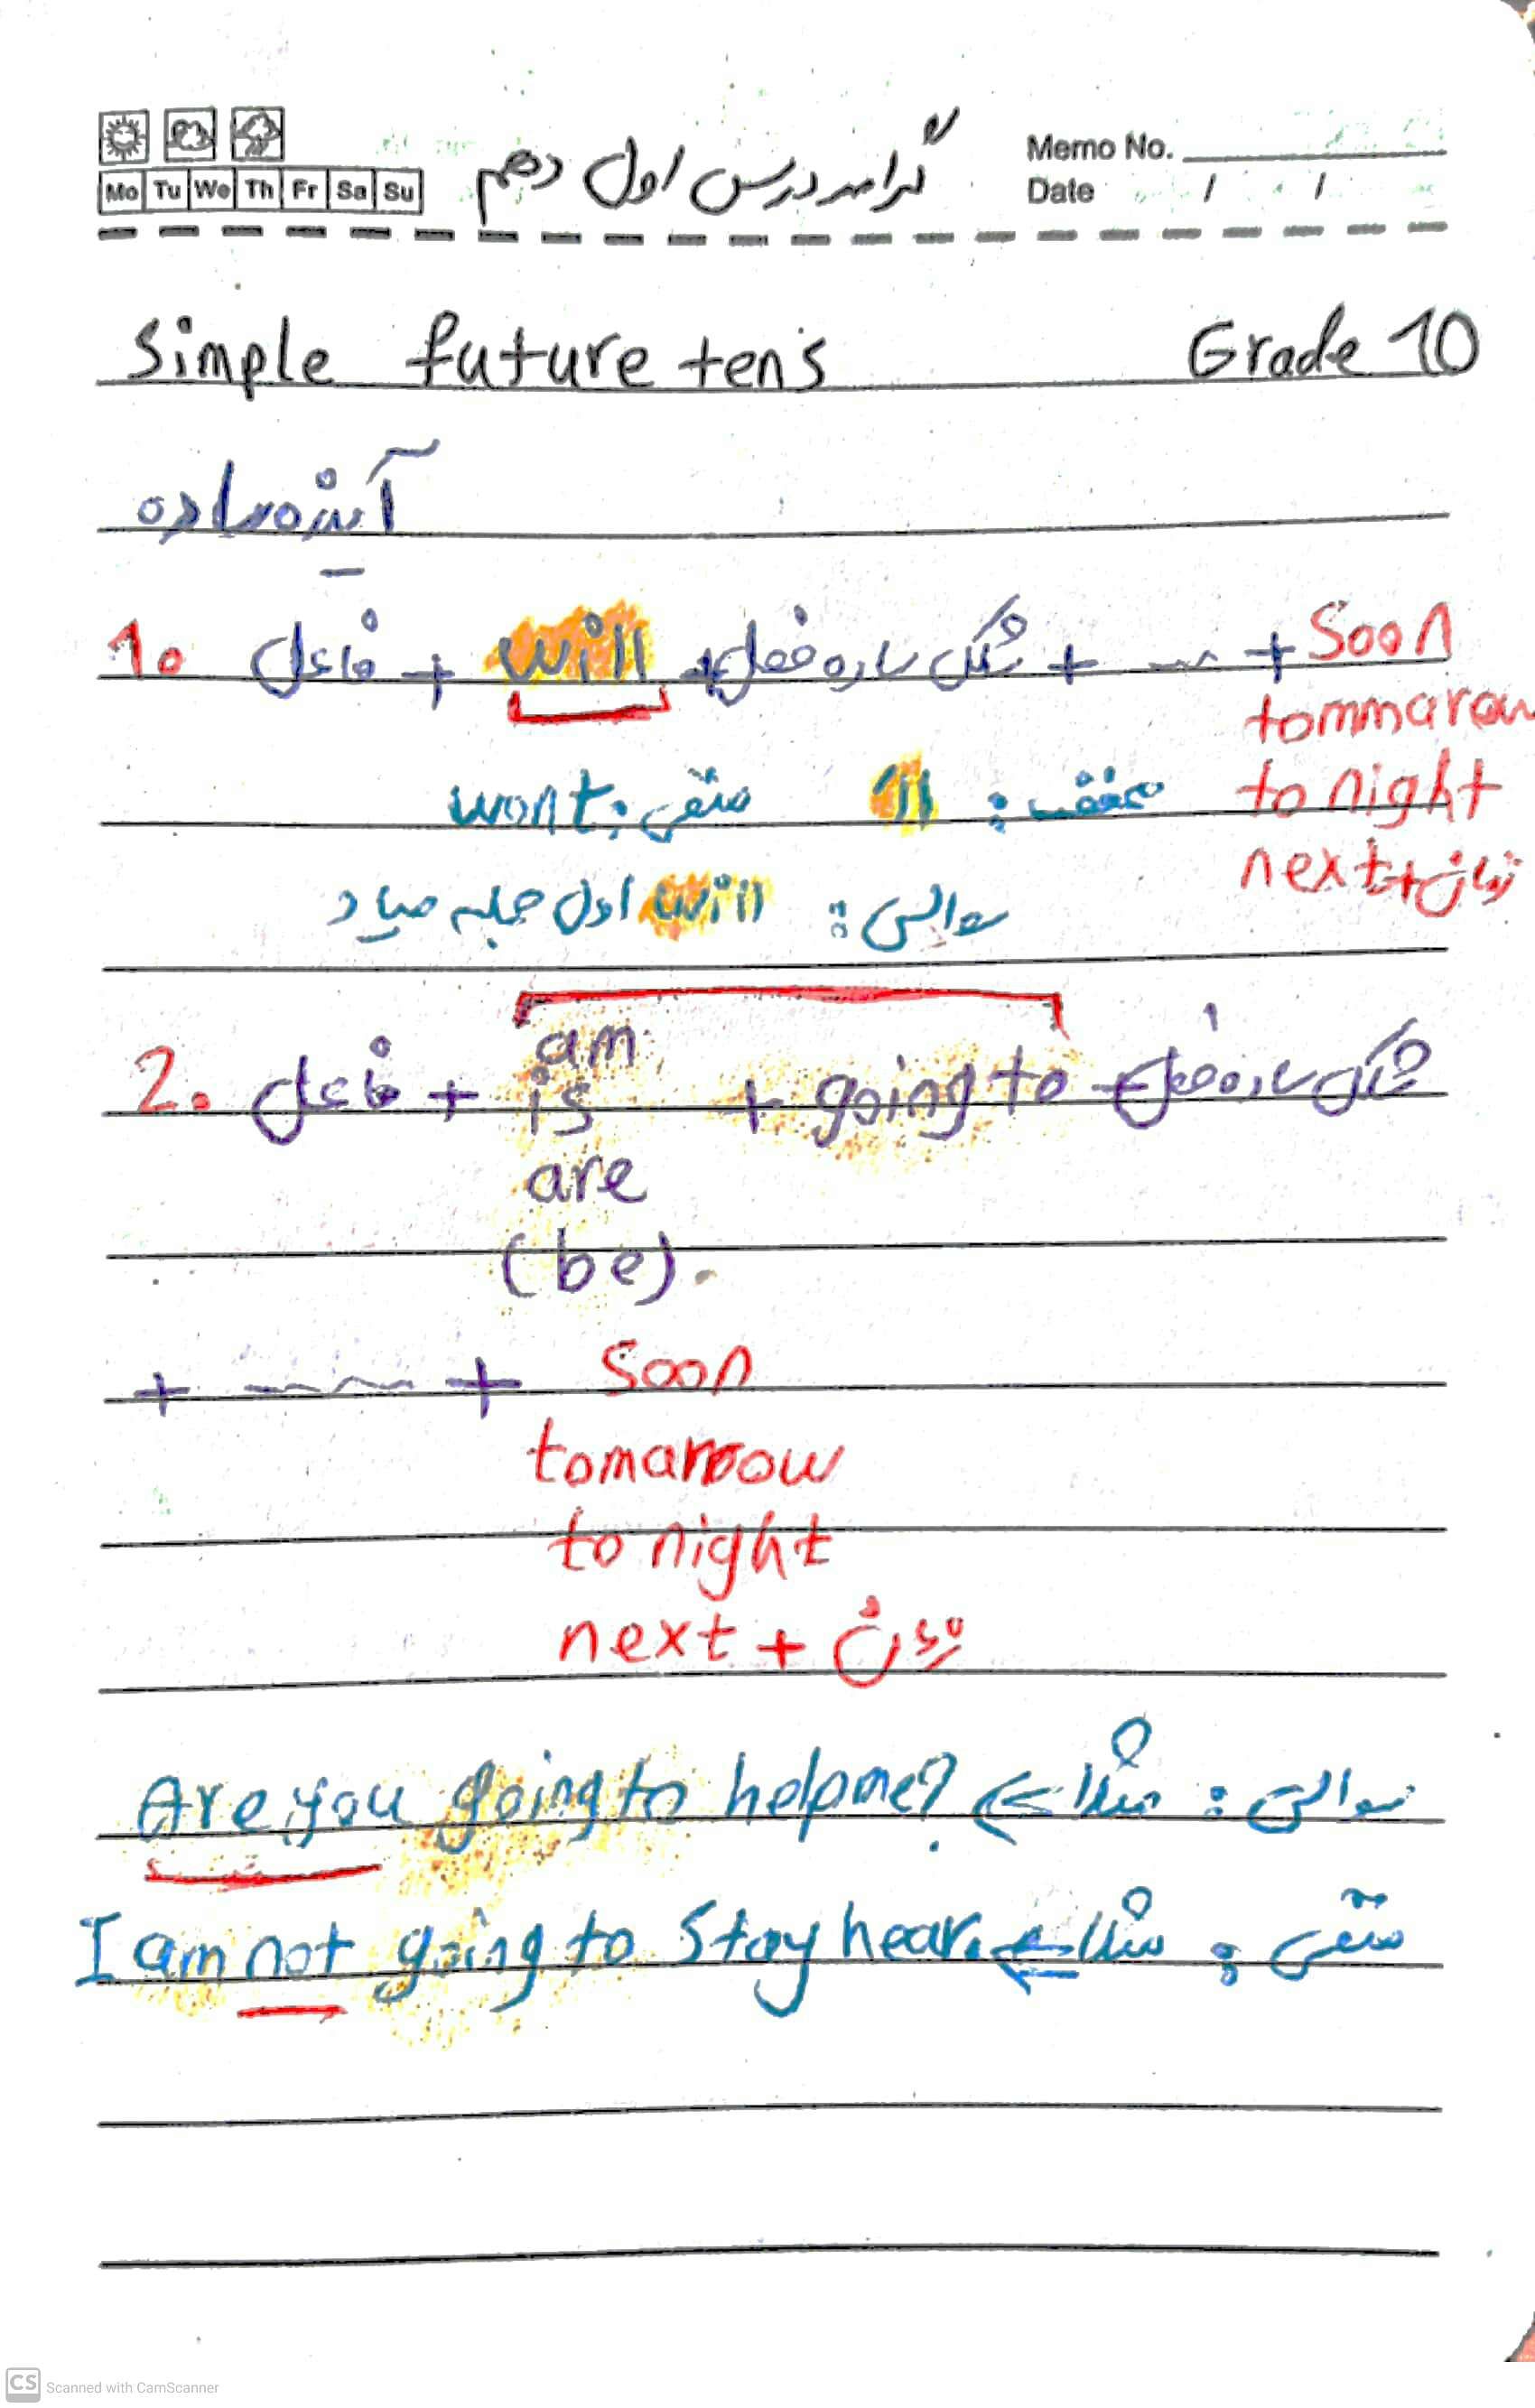 گرامر درس اول دهم
Memo No.
Mo Tu We Th Fr Sa Su
Date / /
Simple future ten's Grade 10
آینده ساده
1. فاعل + will + شکل ساده فعل + ... + Soon
tommarow
مخفف: 'll منفی: wont to night
next + زمان
سوالی: will اول جمله میاد
2. فاعل + am + going to + شکل ساده فعل
is
are
(be).
+ ... + Soon
tomarrow
to night
next + زمان
سوالی: مثلا ← Are you going to help me?
منفی: مثلا ← I am not going to Stay hear.
CS Scanned with CamScanner